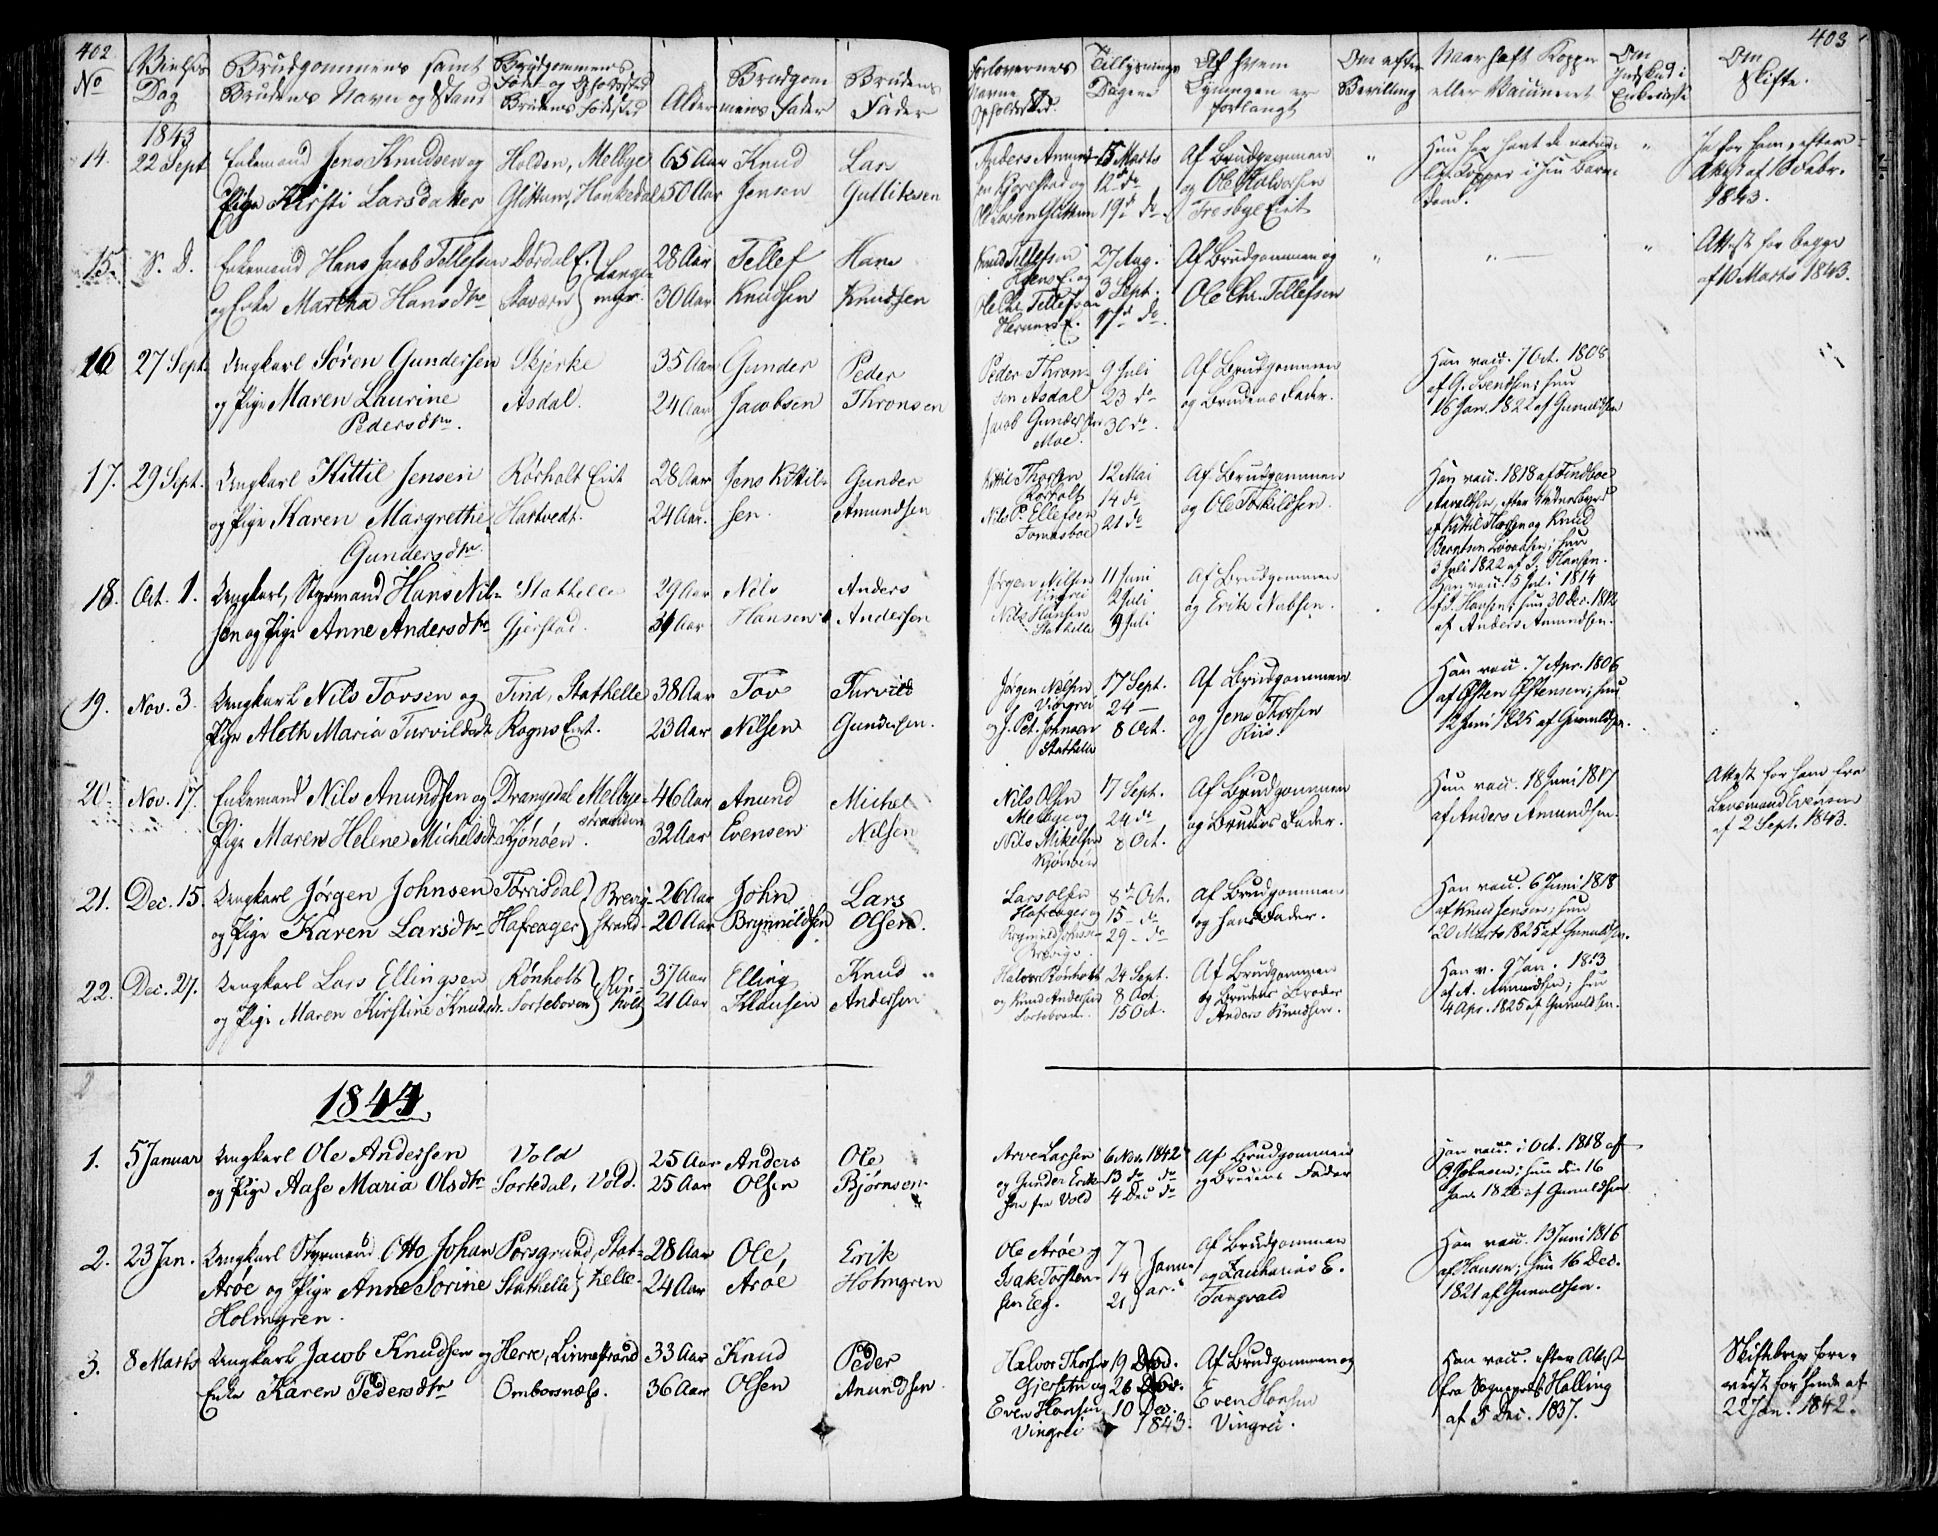 402
No
Vielses
Dag
Brudgommens samt
Brudens Navn og Stand
Brudgommens
Fødest og Opholdssted
Brudens Fødested
Alder
Brudgom
mens Fader
Brudens
Fader
1843
14. 22 Sept Enkemand Jens Knudsen og Holden, Melbye 65 Aar Knud Lars
Pige Kirsti Larsdatter Glittum, Hankedal 50 Aar Jensen Gulliksen
15. S. D. Enkemand Hans Jacob Tellefsen Dørdal E. Lange- 28 Aar Tellef Hans
og Enke Martha Hansdtr Staværn 30 Aar Knudsen Knudsen
16 27 Sept. Ungkarl Søren Gundersen Skjerke 35 Aar Gunder Peder
og Pige Maren Laurine Asdal. 24 Aar Jacobsen Thronsen
Pedersdtr.
17. 29 Sept. Ungkarl Kittil Jensen Rørholt Eiet 28 Aar Jens Kittil- Gunder
og Pige Karen Margrethe Hartvedt. 24 Aar. sen. Amundsen
Gundersdtr.
18. Oct. 1. Ungkarl, Styrmand Hans Nil- Stathelle 29 Aar Nils Anders
sen og Pige Anne Andersdtr Gjerstad. Aar Hansen Andersen
19. Nov. 3. Ungkarl Nils Tovsen og Tind, Stathelle 38 Aar Tov Turvild
Pige Aleth Maria Turvildsdt Rogns Eiet. 23 Aar Nilsen Gundersen.
20. Nov. 17. Enkemand Nils Anundsen og Drangedal Melbye- 46 Aar Anund Michel
stranden
Pige Maren Helene Michelsdt. Kjønøen. 32 Aar Evensen Nilsen
21. Dec. 15. Ungkarl Jørgen Johnsen Torrisdal Brevig- 26 Aar John Lars
og Pige Karen Larsdtr Hafreager strand 20 Aar Brynnildsen Olsen.
22. Dec. 27. Ungkarl Lars Ellingsen Rønholt Røn- 37 Aar Elling Knud
og Pige Maren Kirstine Knudsd. Torteboven holt 21 Aar Klausen Andersen
1844.
1. 5 Januar Ungkarl Ole Andersen Vold 25 Aar Anders Ole
og Pige Aase Maria Olsdtr Sortedal, Vold. 25 Aar Olsen Bjørnsen.
2. 23 Jan. Ungkarl Styrmand Otto Johan Porsgrund, Stat- 28 Aar Ole, Erik
Arøe og Pige Anne Sorine Stathelle helle. 24 Aar Arøe Holmgren
Holmgren.
3. 8 Marts Ungkarl Jacob Knudsen og Herre, Linnestrand 33 Aar Knud Peder
Enke Karen Pedersdtr Omborsnæs. 36 Aar Olsen Anundsen.
403
Forlovernes
Navne
Opholdssted.
Tillysnings
Dagene
Af hvem
Lysningen er
forlangt
Om efter
Bevilling
Naar haft Kopper
eller Vaccineret
Om
Indskud i
Enkekasse
Om
Skifte.
Anders Anund- 5 Marts Af Brudgommen " Hun har havt de natur- " Ja for ham, efter
sen og 12 do og Ole Halvorsen Kopper i sin Barn- Attest af 16 Febr.
Ole Larsen Glittum 19 do. Trosbye Eiet dom. 1843.
Knud Tellefsen 27 Aug. Af Brudgommen og " " " Attest for begge
E. og 3 Sept. Ole Chr. Tellefsen af 10 Marts 1843.
Ole Chr. Tellefsen
E. 17 do.
Peder Thron- 9 Juli Af Brudgommen Han vacc. 7 Oct. 1808
sen Asdal 23 do og Brudens Fader. af G. Svendsen; hun
Jacob Gundersen 30 do. 16 Jan. 1822 af Gunuldsen
Moe.
Kittil Thorsen 12 Mai Af Brudgommen Han vacc. 1818 af Findboe
Rørholt 14 do og Ole Torkildsen.
Nils P. Ellefsen 21 do af Kittil Thorsen og Knud
Tomasboe Bergtsen hun
3 Juli 1822 af J. Hansen.
Jørgen Nilsen 11 Juni Af Brudgommen Han vacc. 5 Juli 1814
Vingrei 2 Juli og Erik Nabsen. af J. Hansen; hun 30 Dec. 1812
Nils Hansen 9 Juli af Anders Amundsen.
Stathelle
Jørgen Nilsen 17 Sept. Af Brudgommen Han vacc. 7 Apr. 1806
Vingrei 24 — og Jens Thorsen af Østen Østensen; hun
og J. Pet. Johnsen 8 Oct. Riis. 12 Juni 1825 af Gunuldsen.
Stathelle
Nils Olsen 17 Sept. Af Brudgommen Hun vacc. 18 Juni 1817 Attest for ham fra
Melbye og 24 do og Brudens Fader. af Anders Amundsen. Lensmand Evensen
Nils Mikelsen 8 Oct. af 2 Sept. 1843.
Kjønøen
Lars Olsen 8de Oct. Af Brudgommen Han vacc. 6 Juni 1818
Hafreager og 15 — do og hans Fader. af Knud Jensen; hun
29 — do 20 Marts 1825 af Gunuldsen.
Brevig.
Halvor Rønholt 24 Sept. Af Brudgommen Han v. 9 Jan. 1813
og Knud Andersen 8 Oct. og Brudens Broder af A. Amundsen; hun
Torteboven. 15 Oct. Anders Knudsen. 4 Apr. 1825 af Gunuldsen.
Arve Larsen 6 Nov. 1842 Af Brudgommen Han vacc. i Oct. 1818 af
og Gunder Erik- 13 do do og Brudens Fader hun den 16
sen fra Vold 4 Dec do Jan. 1821 af Gunuldsen
Ole Arøe og 7 Janu- Af Brudgommen Han vacc. 13 Juni 1816
Isak Torsten- 14 ar. og Zacharias E. af Hansen; hun 16 Dec.
sen Eeg. 21 Tangvald 1821 af Gunuldsen.
Halvor Thorsen 19 Nov. Af Brudgommen og Han vacc. efter Attest Skiftebrev fore-
Gjersetn og 26 Nov. Even Hansen fra Sognepræst Halling viist for hende af
Even Hansen 10 Dec. Vingrei. af 5 Dec. 1837. 22 Jan. 1842.
Vingrei 1843.